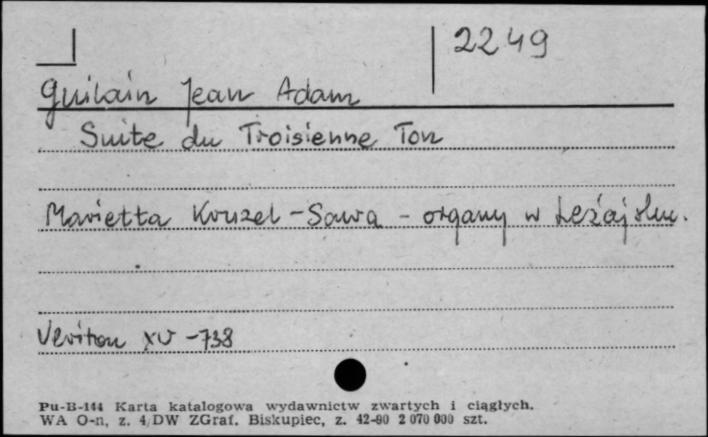 2249
Guilain Jean Adam
Suite du Troisienne Ton
Marietta Kruzel-Sowa - organy w Leżajsku.
Veriton XV-738
Pu-B-144 Karta katalogowa wydawnictw zwartych i ciągłych.
WA O-n, z. 4/DW ZGraf. Biskupiec, z. 42-80 2 070 000 szt.